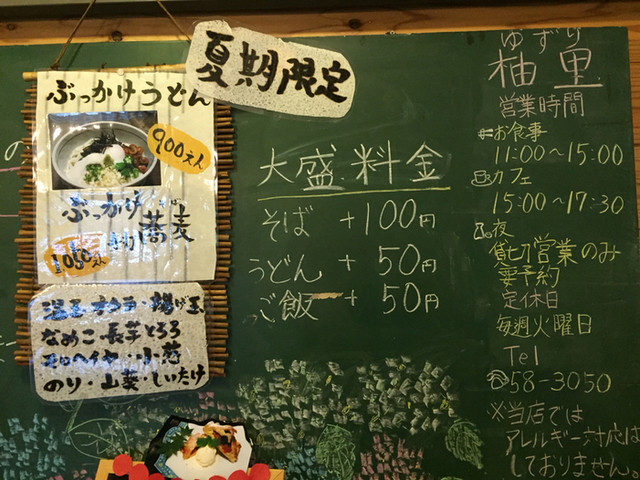 夏期限定
ぶっかけうどん
900えん
ぶっかけ
蕎麦
1050えん
温玉・オクラ・揚げ玉
なめこ・長芋とろろ
モロヘイヤ・小葱
のり・山菜・しいたけ
大盛料金
そば +100円
うどん + 50円
ご飯 + 50円
ゆずり
柚里
営業時間
お食事
11:00~15:00
カフェ
15:00~17:30
夜
貸切営業のみ
要予約
定休日
毎週火曜日
Tel
58-3050
※当店では
アレルギー対応は
しておりません。